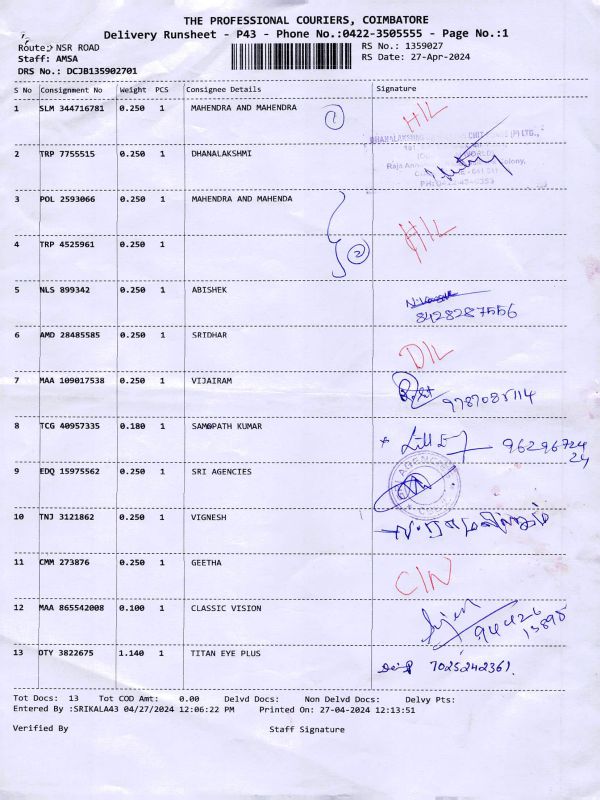 THE PROFESSIONAL COURIERS, COIMBATORE
Delivery Runsheet - P43 - Phone No.:0422-3505555 - Page No.:1
Route: NSR ROAD
RS No.: 1359027
Staff: AMSA
RS Date: 27-Apr-2024
DRS No.: DCJB135902701
S No Consignment No Weight PCS Consignee Details Signature
1 SLM 344716781 0.250 1 MAHENDRA AND MAHENDRA 1 H/L
2 TRP 7755515 0.250 1 DHANALAKSHMI
3 POL 2593066 0.250 1 MAHENDRA AND MAHENDA
4 TRP 4525961 0.250 1 2 H/L
5 NLS 899342 0.250 1 ABISHEK
8428287556
6 AMD 28485585 0.250 1 SRIDHAR D/L
7 MAA 109017538 0.250 1 VIJAIRAM 9787085114
8 TCG 40957335 0.180 1 SAM@PATH KUMAR 96296724
24
9 EDQ 15975562 0.250 1 SRI AGENCIES AGENCIES
10 TNJ 3121862 0.250 1 VIGNESH
11 CMM 273876 0.250 1 GEETHA C/N
12 MAA 865542008 0.100 1 CLASSIC VISION 94426
13895
13 DTY 3822675 1.140 1 TITAN EYE PLUS 7025242361.
Tot Docs: 13 Tot COD Amt: 0.00 Delvd Docs: Non Delvd Docs: Delvy Pts:
Entered By :SRIKALA43 04/27/2024 12:06:22 PM Printed On: 27-04-2024 12:13:51
Verified By Staff Signature